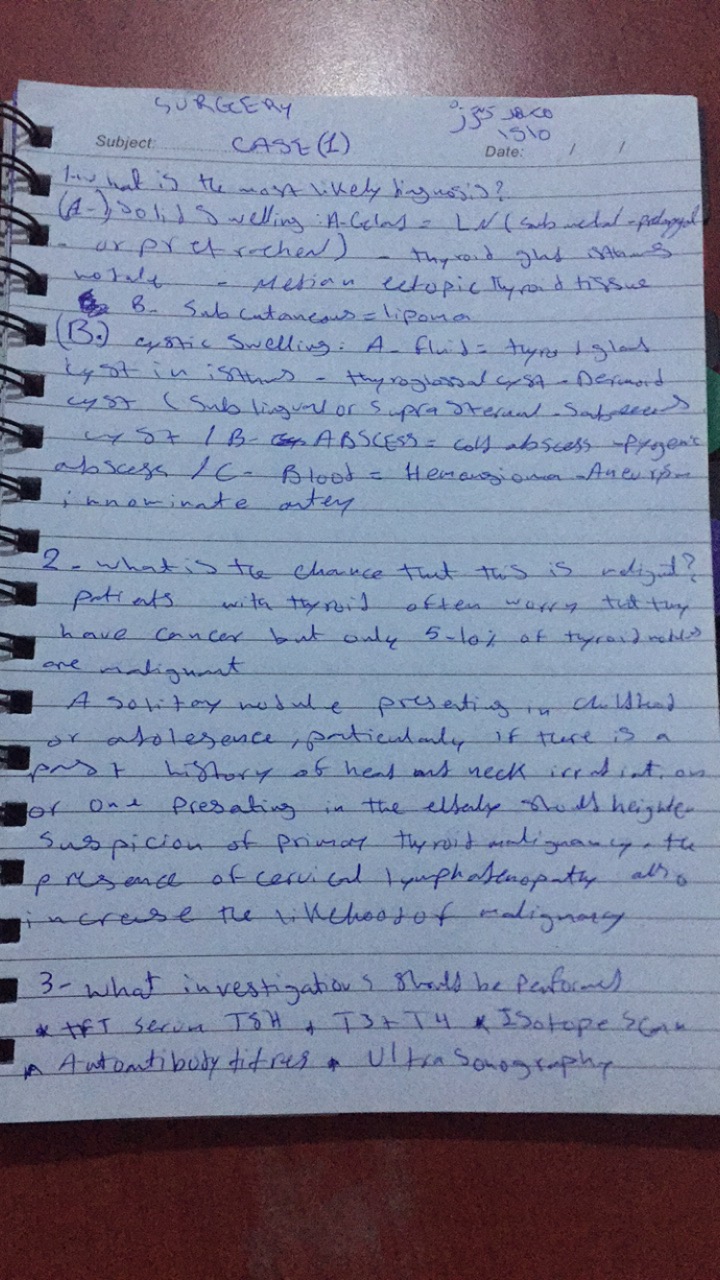 SURGERY
Subject: CASE (1) Date: / /
1- what is the most likely dignosis?
(A-) Solid Swelling: A- Gelas = LN (sub metal -
or pretrachel) - thyroid glnd isthmus
- Median ectopic thyroid tissue
B- Subcutaneous = lipoma
(B.) cystic Swelling: A- fluid = thyroid gland
cyst in isthmus - thyroglossal cyst - Dermoid
cyst (Sub lingual or Supra Sternal -
cyst / B- ABSCESS = cold abscess - pyogenic
abscess / C- Blood = Hemangioma - Aneurysm
innominate artey
2 - what is the chance that this is malignt?
patients with thyroid often worry that they
have cancer but only 5-10% of thyroid nodules
are malignant
A solitary nodule presenting in childhood
or adolesence, particularly if there is a
past history of head and neck irradiation
or one presenting in the elderly should heighten
Suspicion of primary thyroid malignancy. the
presence of cervical lymphadenopathy also
increase the likelhood of malignancy
3- what investigations should be performed
* TFT serum TSH + T3 + T4 * Isotope Scan
* Autoantibody titres * UltraSonography